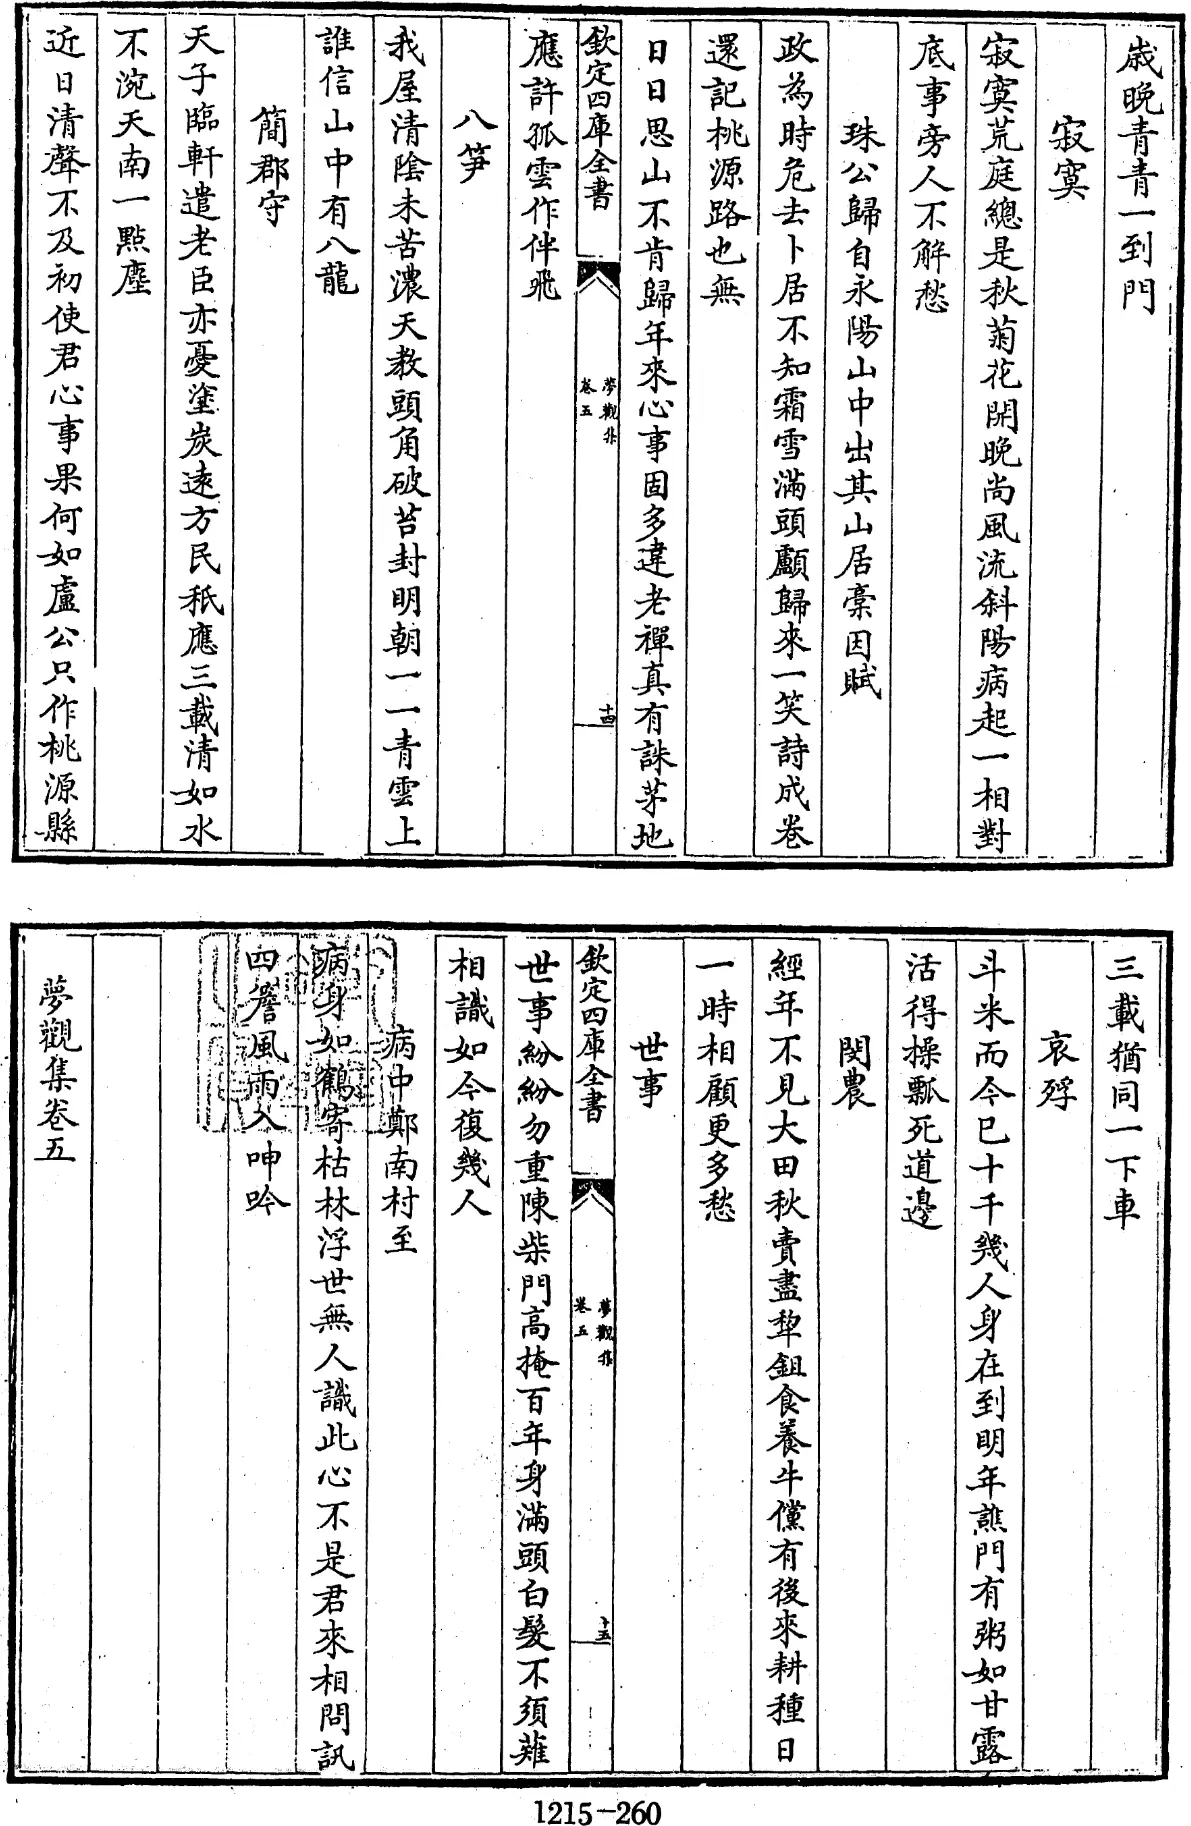 歲晚青青一到門
寂寞
寂寞荒庭總是秋菊花開晚尚風流斜陽病起一相對
底事旁人不解愁
珠公歸自永陽山中出其山居稾因賦
政為時危去卜居不知霜雪滿頭顱歸來一笑詩成卷
還記桃源路也無
日日思山不肯歸年來心事固多違老禪真有誅茅地
欽定四庫全書
夢觀集
卷五
十四
應許孤雲作伴飛
八笋
我屋清陰未苦濃天教頭角破苔封明朝一一青雲上
誰信山中有八龍
簡郡守
天子臨軒遣老臣亦憂塗炭逺方民秖應三載清如水
不涴天南一點塵
近日清聲不及初使君心事果何如盧公只作桃源縣
三載猶同一下車
哀殍
斗米而今已十千幾人身在到明年譙門有粥如甘露
活得操瓢死道邊
閔農
經年不見大田秋賣盡犂鉏食養牛儻有後來耕種日
一時相顧更多愁
世事
欽定四庫全書
夢觀集
卷五
十五
世事紛紛勿重陳柴門高掩百年身滿頭白髮不須薙
相識如今復幾人
病中鄭南村至
病身如鶴寄枯林浮世無人識此心不是君來相問訊
四簷風雨入呻吟
夢觀集卷五
1215-260